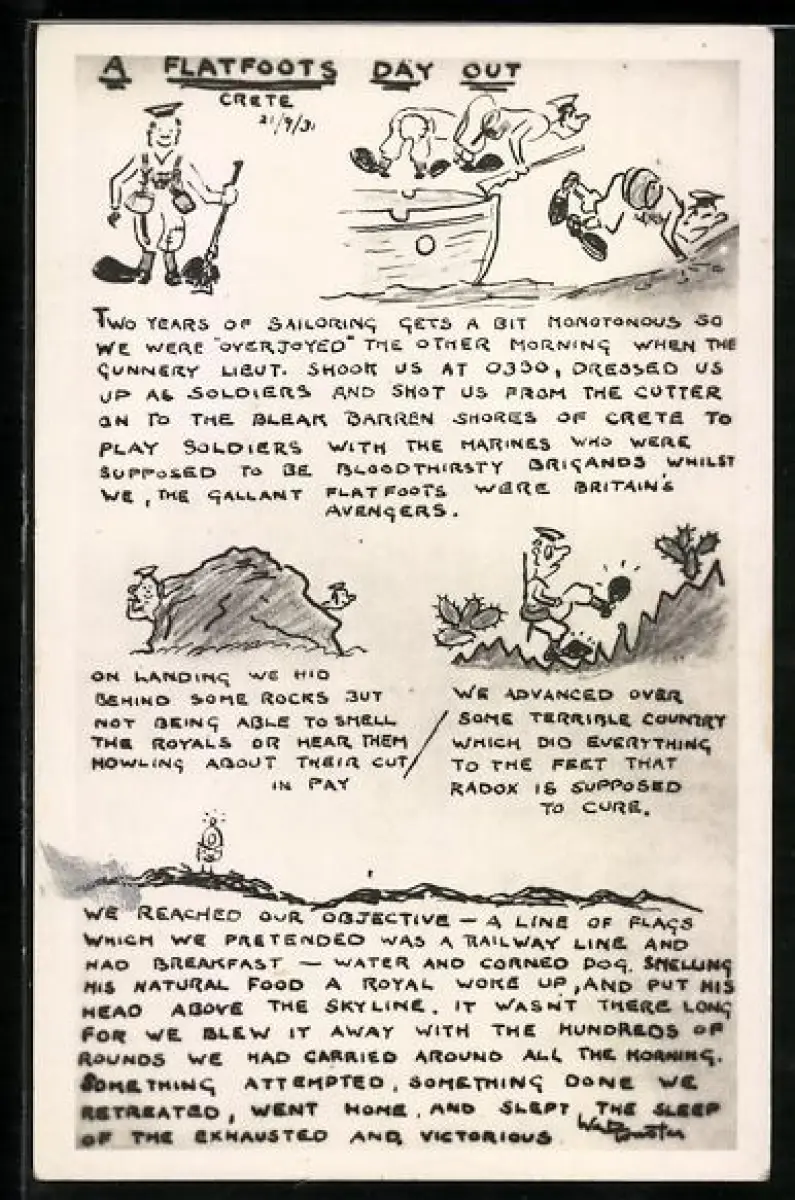 A FLATFOOTS DAY OUT
CRETE
21/9/31
TWO YEARS OF SAILORING GETS A BIT MONOTONOUS SO
WE WERE "OVERJOYED" THE OTHER MORNING WHEN THE
GUNNERY LIEUT. SHOOK US AT 0330, DRESSED US
UP AS SOLDIERS AND SHOT US FROM THE CUTTER
ON TO THE BLEAK BARREN SHORES OF CRETE TO
PLAY SOLDIERS WITH THE MARINES WHO WERE
SUPPOSED TO BE BLOODTHIRSTY BRIGANDS, WHILST
WE, THE GALLANT FLATFOOTS WERE BRITAIN'S
AVENGERS.
ON LANDING WE HID
BEHIND SOME ROCKS BUT
NOT BEING ABLE TO SMELL
THE ROYALS OR HEAR THEM
HOWLING ABOUT THEIR CUT
IN PAY
WE ADVANCED OVER
SOME TERRIBLE COUNTRY
WHICH DID EVERYTHING
TO THE FEET THAT
RADOX IS SUPPOSED
TO CURE.
WE REACHED OUR OBJECTIVE — A LINE OF FLAGS
WHICH WE PRETENDED WAS A RAILWAY LINE AND
HAD BREAKFAST — WATER AND CORNED DOG. SMELLING
HIS NATURAL FOOD A ROYAL WOKE UP, AND PUT HIS
HEAD ABOVE THE SKYLINE. IT WASN'T THERE LONG
FOR WE BLEW IT AWAY WITH THE HUNDREDS OF
ROUNDS WE HAD CARRIED AROUND ALL THE MORNING.
SOMETHING ATTEMPTED, SOMETHING DONE WE
RETREATED, WENT HOME, AND SLEPT THE SLEEP
OF THE EXHAUSTED AND VICTORIOUS